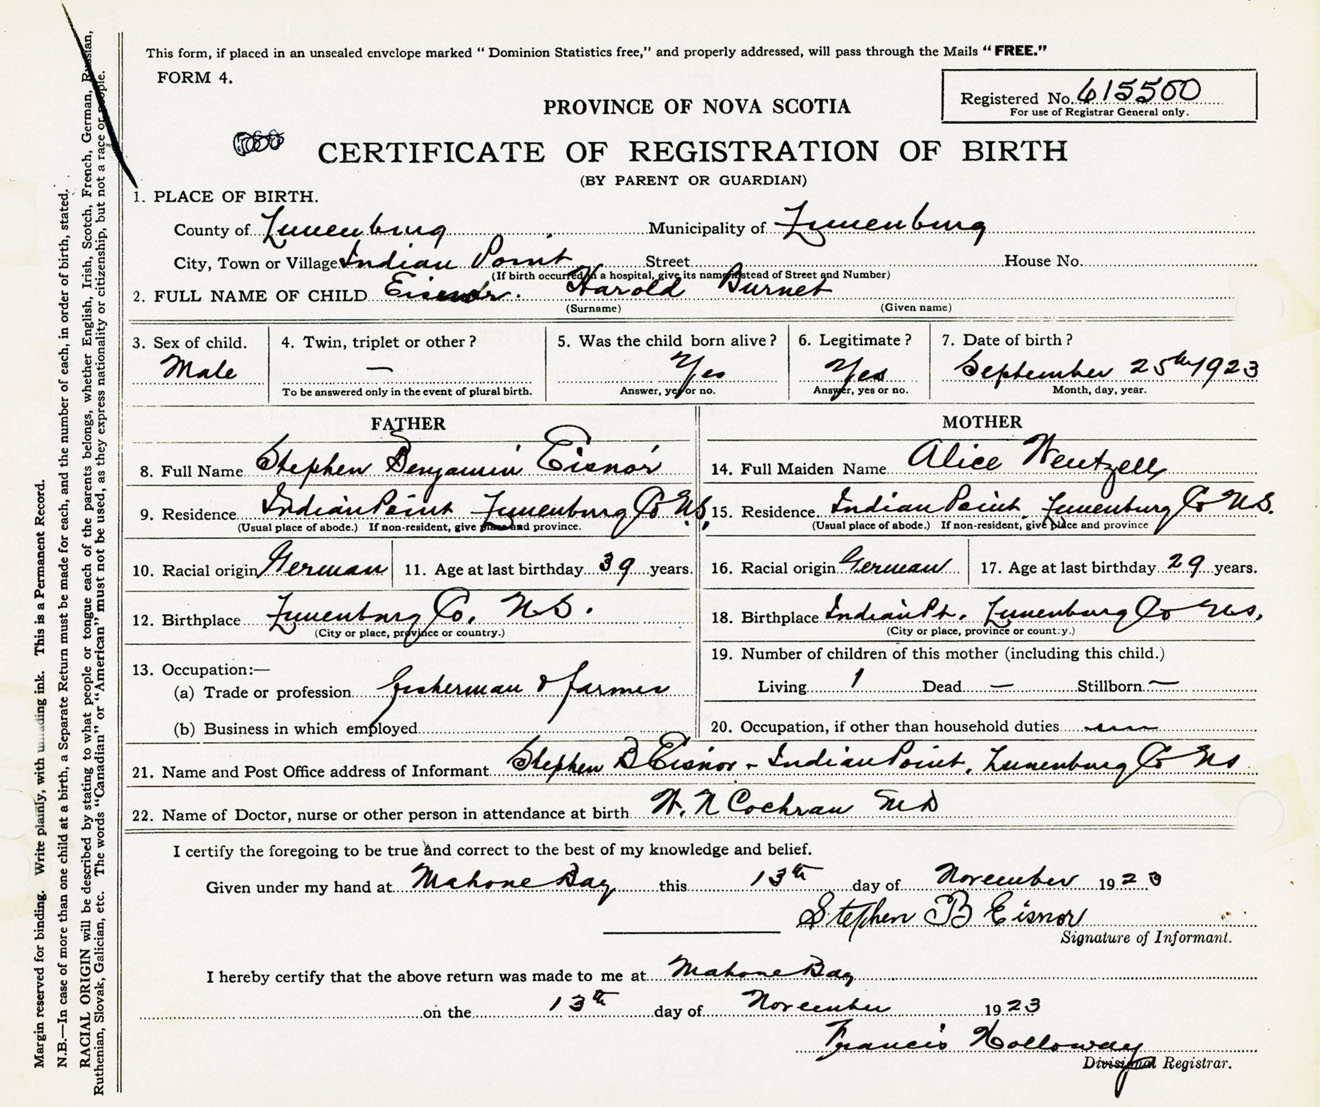 This form, if placed in an unsealed envelope marked “ Dominion Statistics free,” and properly addressed, will pass through the Mails “ FREE.”
FORM 4.
Registered No. 615500
For use of Registrar General only.
PROVINCE OF NOVA SCOTIA
CERTIFICATE OF REGISTRATION OF BIRTH
(BY PARENT OR GUARDIAN)
1. PLACE OF BIRTH.
County of Lunenburg Municipality of Lunenburg
City, Town or Village Indian Point Street House No.
(If birth occurred in a hospital, give its name instead of Street and Number)
2. FULL NAME OF CHILD Eisnor. Harold Burnet
(Surname) (Given name)
3. Sex of child. 4. Twin, triplet or other ? 5. Was the child born alive ? 6. Legitimate ? 7. Date of birth ?
Male — Yes Yes September 25th 1923
To be answered only in the event of plural birth. Answer, yes or no. Answer, yes or no. Month, day, year.
FATHER MOTHER
8. Full Name Stephen Benjamin Eisnor 14. Full Maiden Name Alice Wentzell
9. Residence Indian Point Lunenburg Co N.S. 15. Residence Indian Point. Lunenburg Co N.S.
(Usual place of abode.) If non-resident, give place and province. (Usual place of abode.) If non-resident, give place and province
10. Racial origin German 11. Age at last birthday 39 years. 16. Racial origin German 17. Age at last birthday 29 years.
12. Birthplace Lunenburg Co. N.S. 18. Birthplace Indian Pt. Lunenburg Co N.S.
(City or place, province or country.) (City or place, province or country.)
13. Occupation:— 19. Number of children of this mother (including this child.)
(a) Trade or profession fisherman & farmer Living 1 Dead — Stillborn —
(b) Business in which employed 20. Occupation, if other than household duties
21. Name and Post Office address of Informant Stephen B Eisnor - Indian Point. Lunenburg Co Ns
22. Name of Doctor, nurse or other person in attendance at birth W. N Cochran MD
I certify the foregoing to be true and correct to the best of my knowledge and belief.
Given under my hand at Mahone Bay this 13th day of November 1923
Stephen B Eisnor
Signature of Informant.
I hereby certify that the above return was made to me at Mahone Bay
on the 13th day of November 1923
Francis Holloway
Divisional Registrar.
Margin reserved for binding. Write plainly, with unfading ink. This is a Permanent Record.
N.B.—In case of more than one child at a birth, a Separate Return must be made for each, and the number of each, in order of birth, stated.
RACIAL ORIGIN will be described by stating to what people or tongue each of the parents belongs, whether English, Irish, Scotch, French, German, Russian,
Ruthenian, Slovak, Galician, etc. The words “Canadian” or “American” must not be used, as they express nationality or citizenship, but not a race or people.